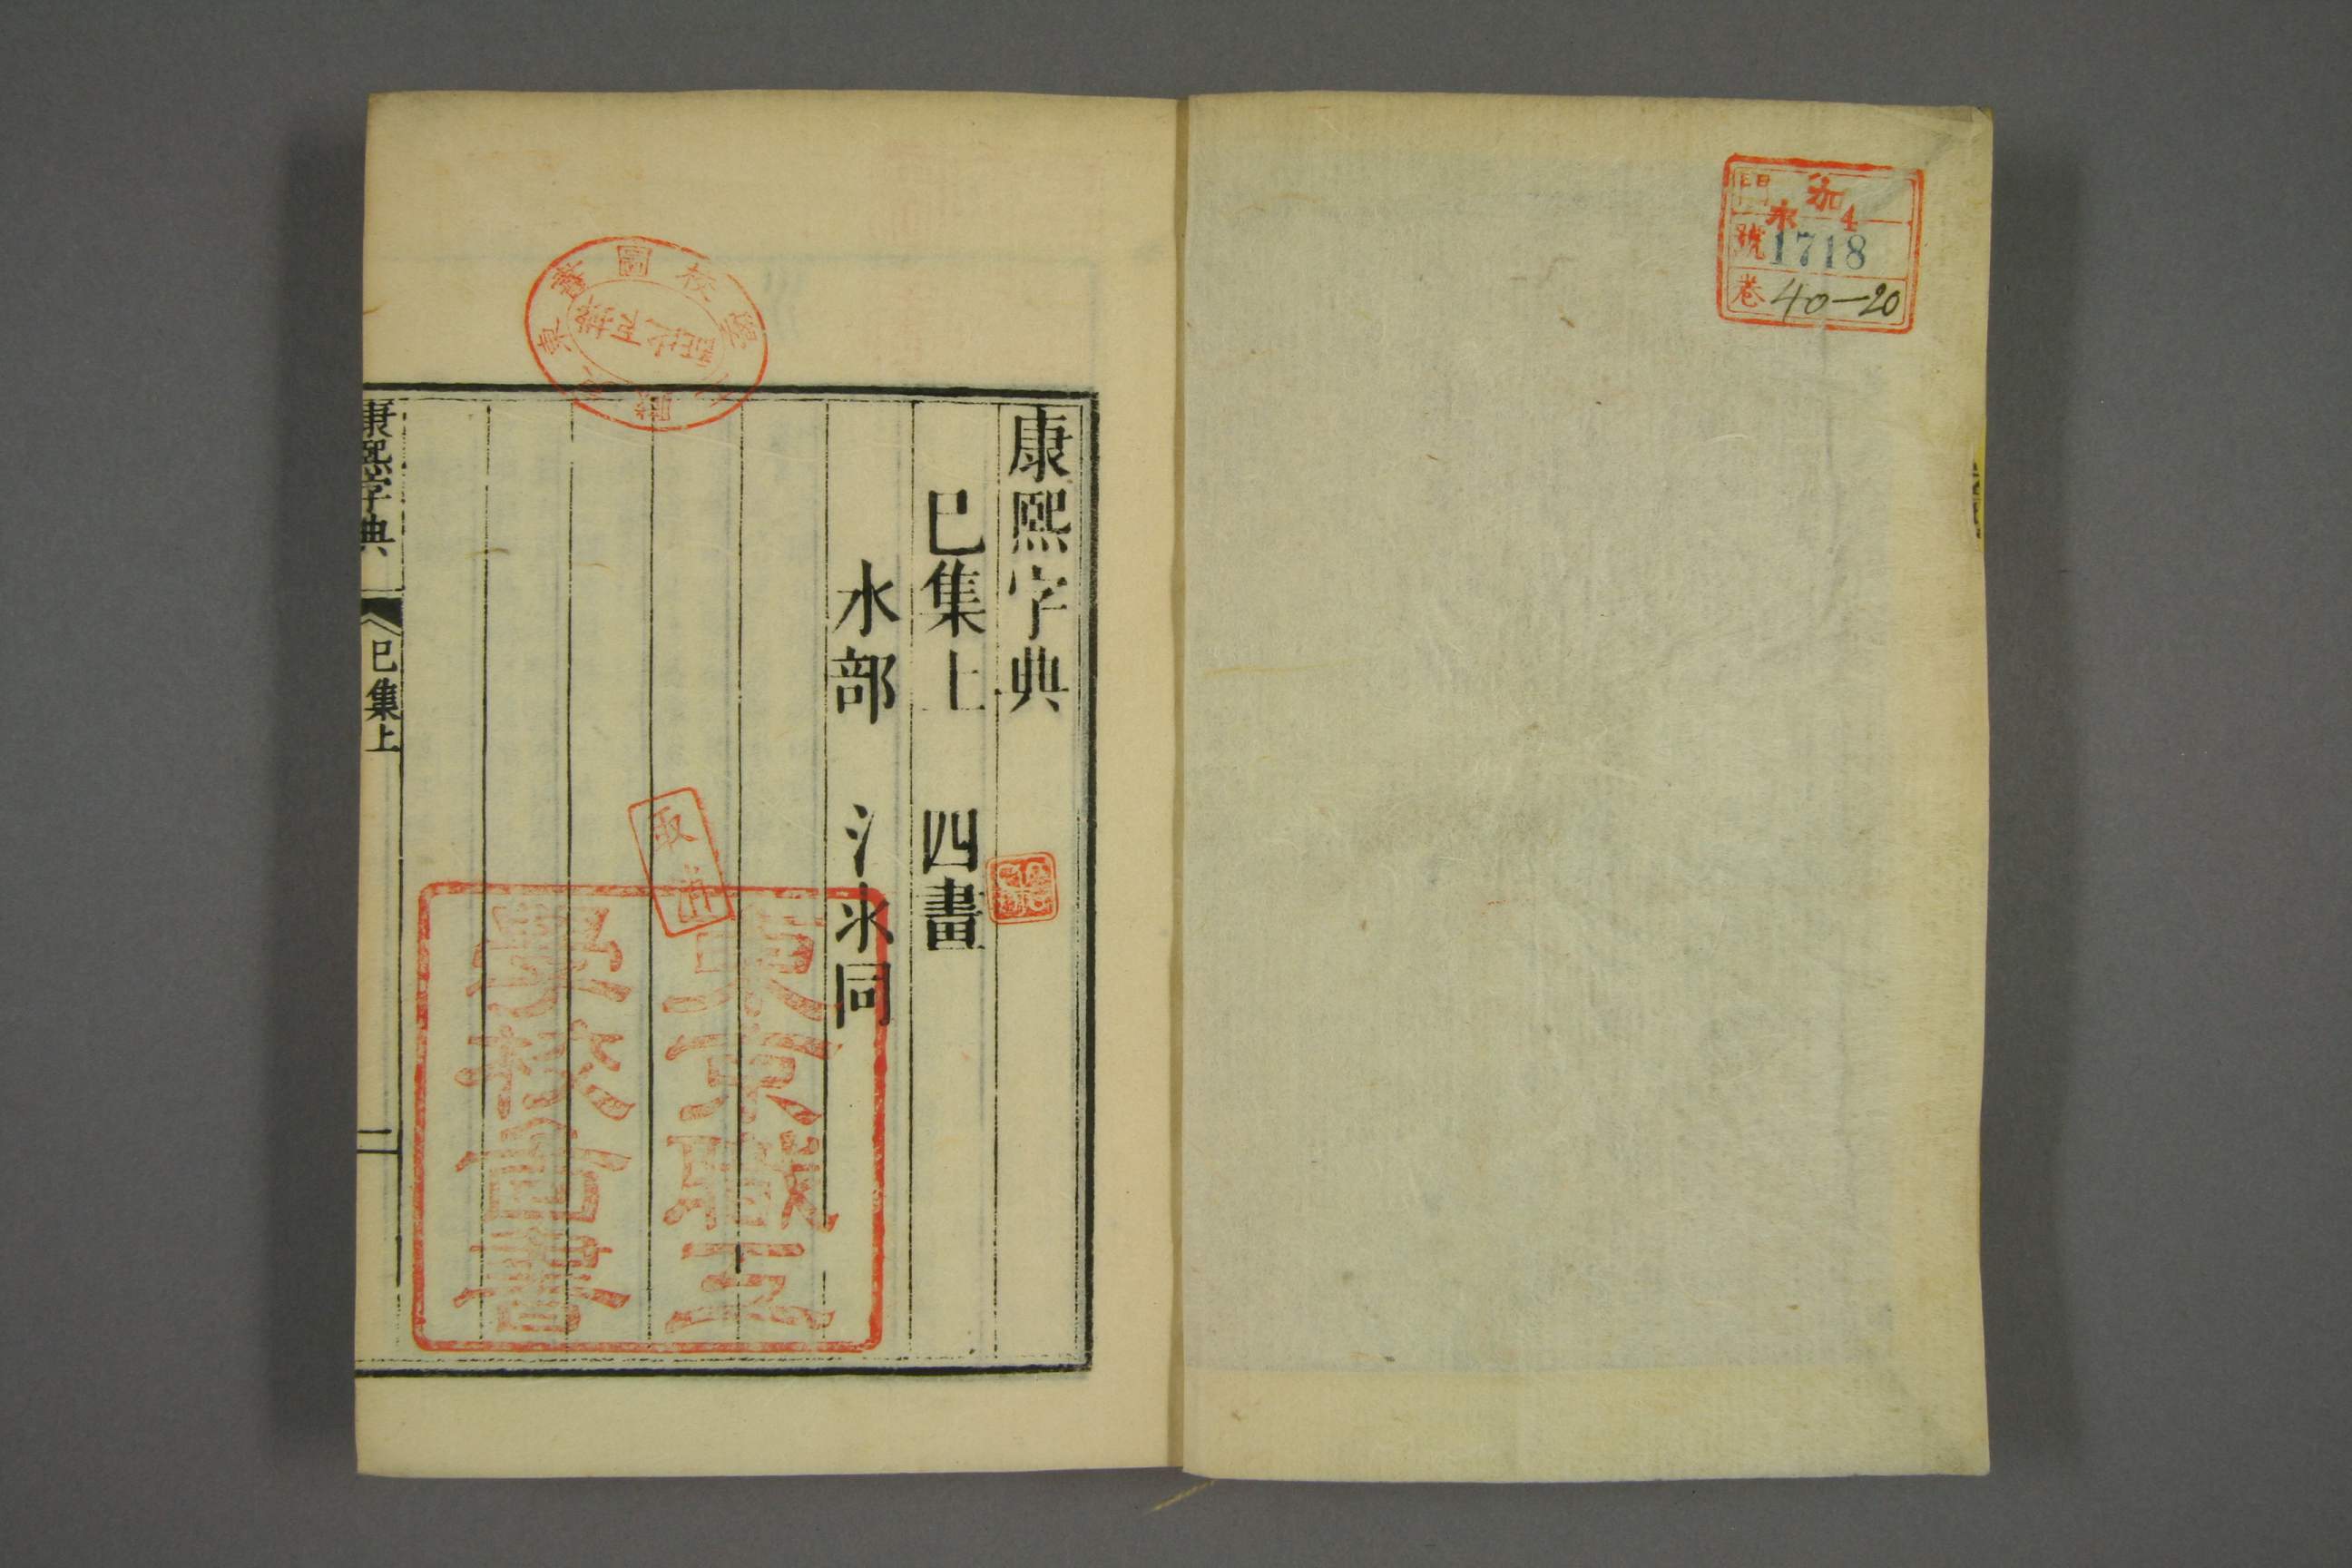 門 洳 4
號 1718
卷 40-20
康熙字典
巳集上 四畫
水部 氵氺同
取消
東京職工
學校圖書
康熙字典 巳集上 一